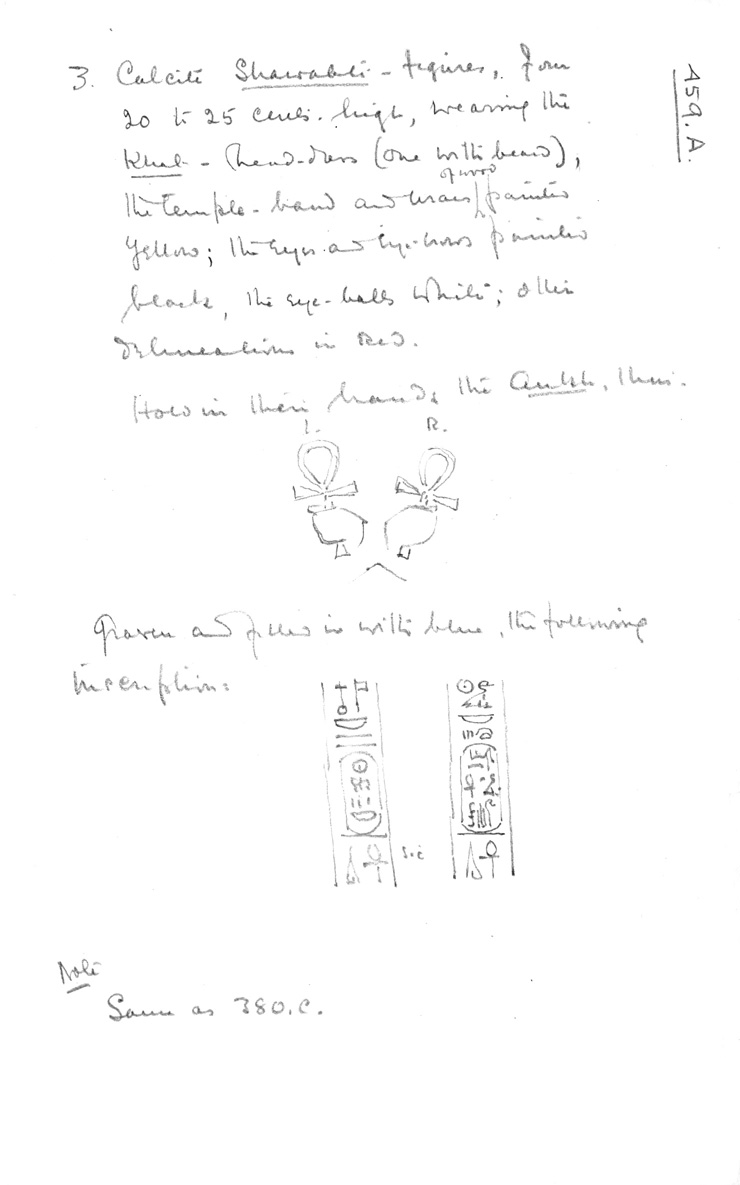 459.A.
3. Calcite Shawabti-figures, from
20 to 25 cents. high, wearing the
Khat-head-dress (one with beard),
of wood
the temple-band and uraei painted
yellow; the eyes and eye-brows painted
black, the eye-balls white; other
delineations in Red.
Hold in their hands the Ankh, thus.
L. R.
Graven and filled in with blue, the following
inscription:
sic
Note
Same as 380.C.